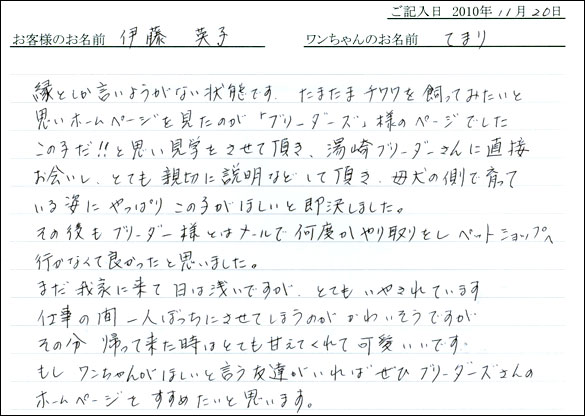 ご記入日 2010年 11月 20日
お客様のお名前 伊藤 英子 ワンちゃんのお名前 てまり
縁としか言いようがない状態です. たまたまチワワを飼ってみたいと
思いホームページを見たのが「ブリーダーズ」様のページでした
この子だ!!と思い見学をさせて頂き、湯崎ブリーダーさんに直接
お会いし、とても親切に説明などして頂き、母犬の側で育って
いる姿に やっぱり この子がほしいと即決しました。
その後も ブリーダー様とはメールで何度かやり取りをし ペットショップへ
行かなくて良かったと思いました。
まだ我家に来て日は浅いですが、とてもいやされています
仕事の間 一人ぼっちにさせてしまうのが かわいそうですが
その分 帰って来た時はとても甘えてくれて可愛いいです
もし ワンちゃんがほしいと言う友達がいれば ぜひ ブリーダーズさんの
ホームページを すすめたいと思います。